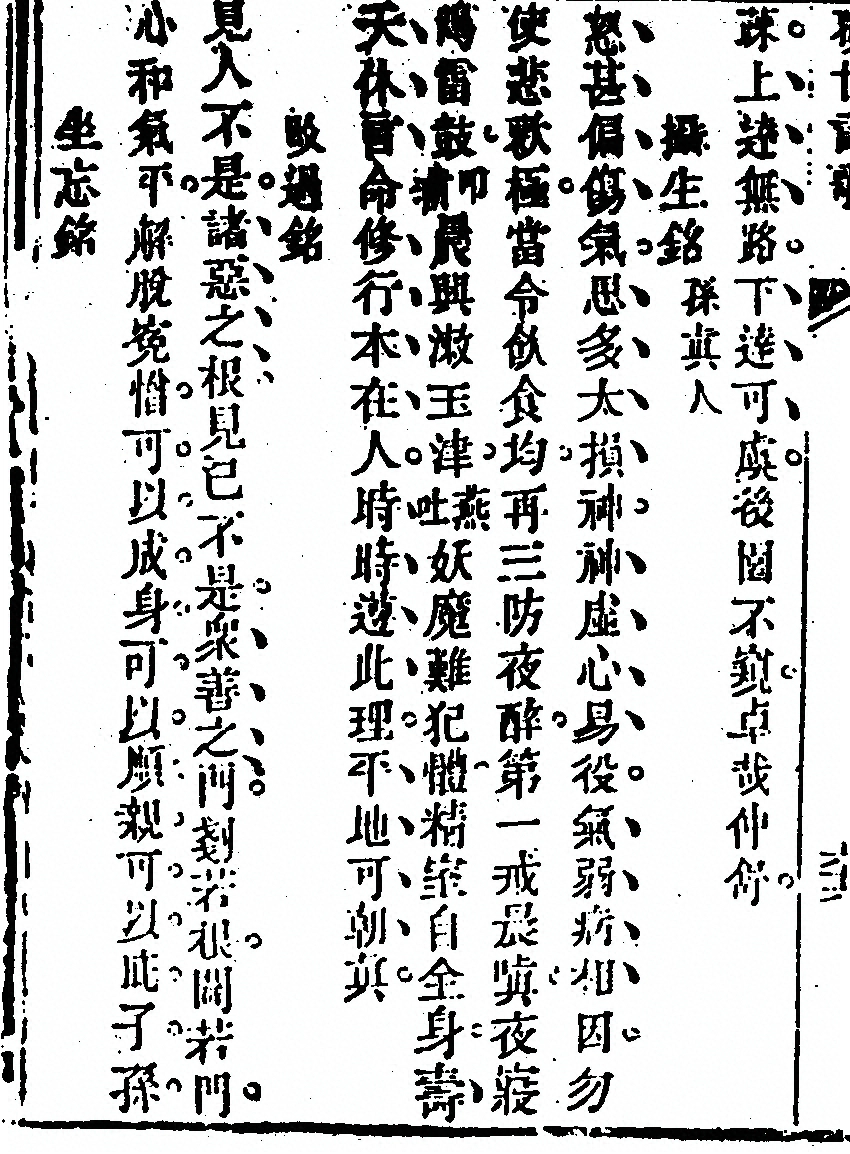 疎上達無路下達可虞後園不窺卓哉仲舒
攝生銘 孫真人
怒甚偏傷氣思多太損神神虛心易役氣弱病相因勿
使悲歡極當令飲食均再三防夜醉第一戒晨嗔夜寢
鳴雷鼓叩齒晨興漱玉津燕吐妖魔難犯體精氣自全身壽
夭休命修行本在人時時遵此理平地可朝真
過銘
見人不是諸惡之根見己不是衆善之門剗若根闢若門
心和氣平解脫冤憎可以成身可以順親可以庇子孫
坐忘銘